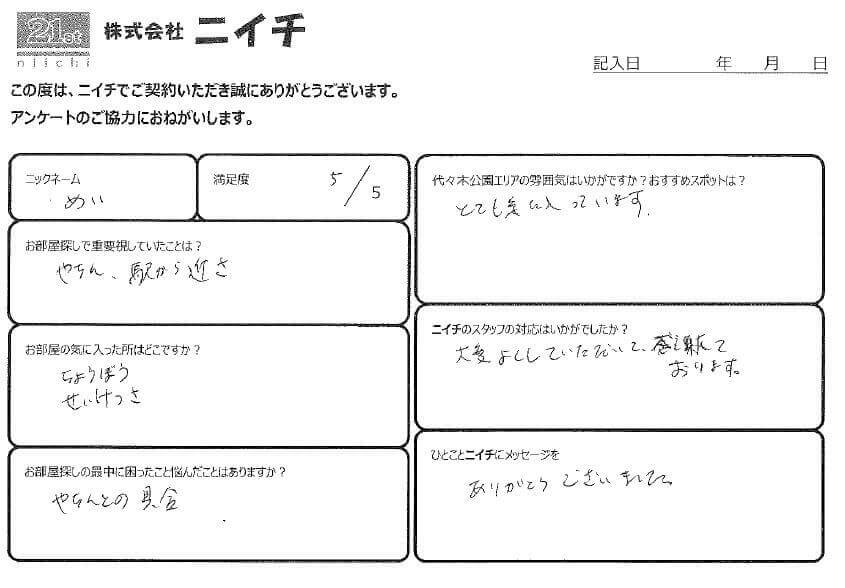 21st
niichi
株式会社 ニイチ
記入日 年 月 日
この度は、ニイチでご契約いただき誠にありがとうございます。
アンケートのご協力におねがいします。
ニックネーム
めい
満足度
5/5
お部屋探しで重要視していたことは？
やちん、駅から近さ
お部屋の気に入った所はどこですか？
ちょうぼう
せいけつさ
お部屋探しの最中に困ったこと悩んだことはありますか？
やちんとの具合
代々木公園エリアの雰囲気はいかがですか？おすすめスポットは？
とても気に入っています。
ニイチのスタッフの対応はいかがでしたか？
大変よくしていただいて、感謝して
おります。
ひとことニイチにメッセージを
ありがとうございました。